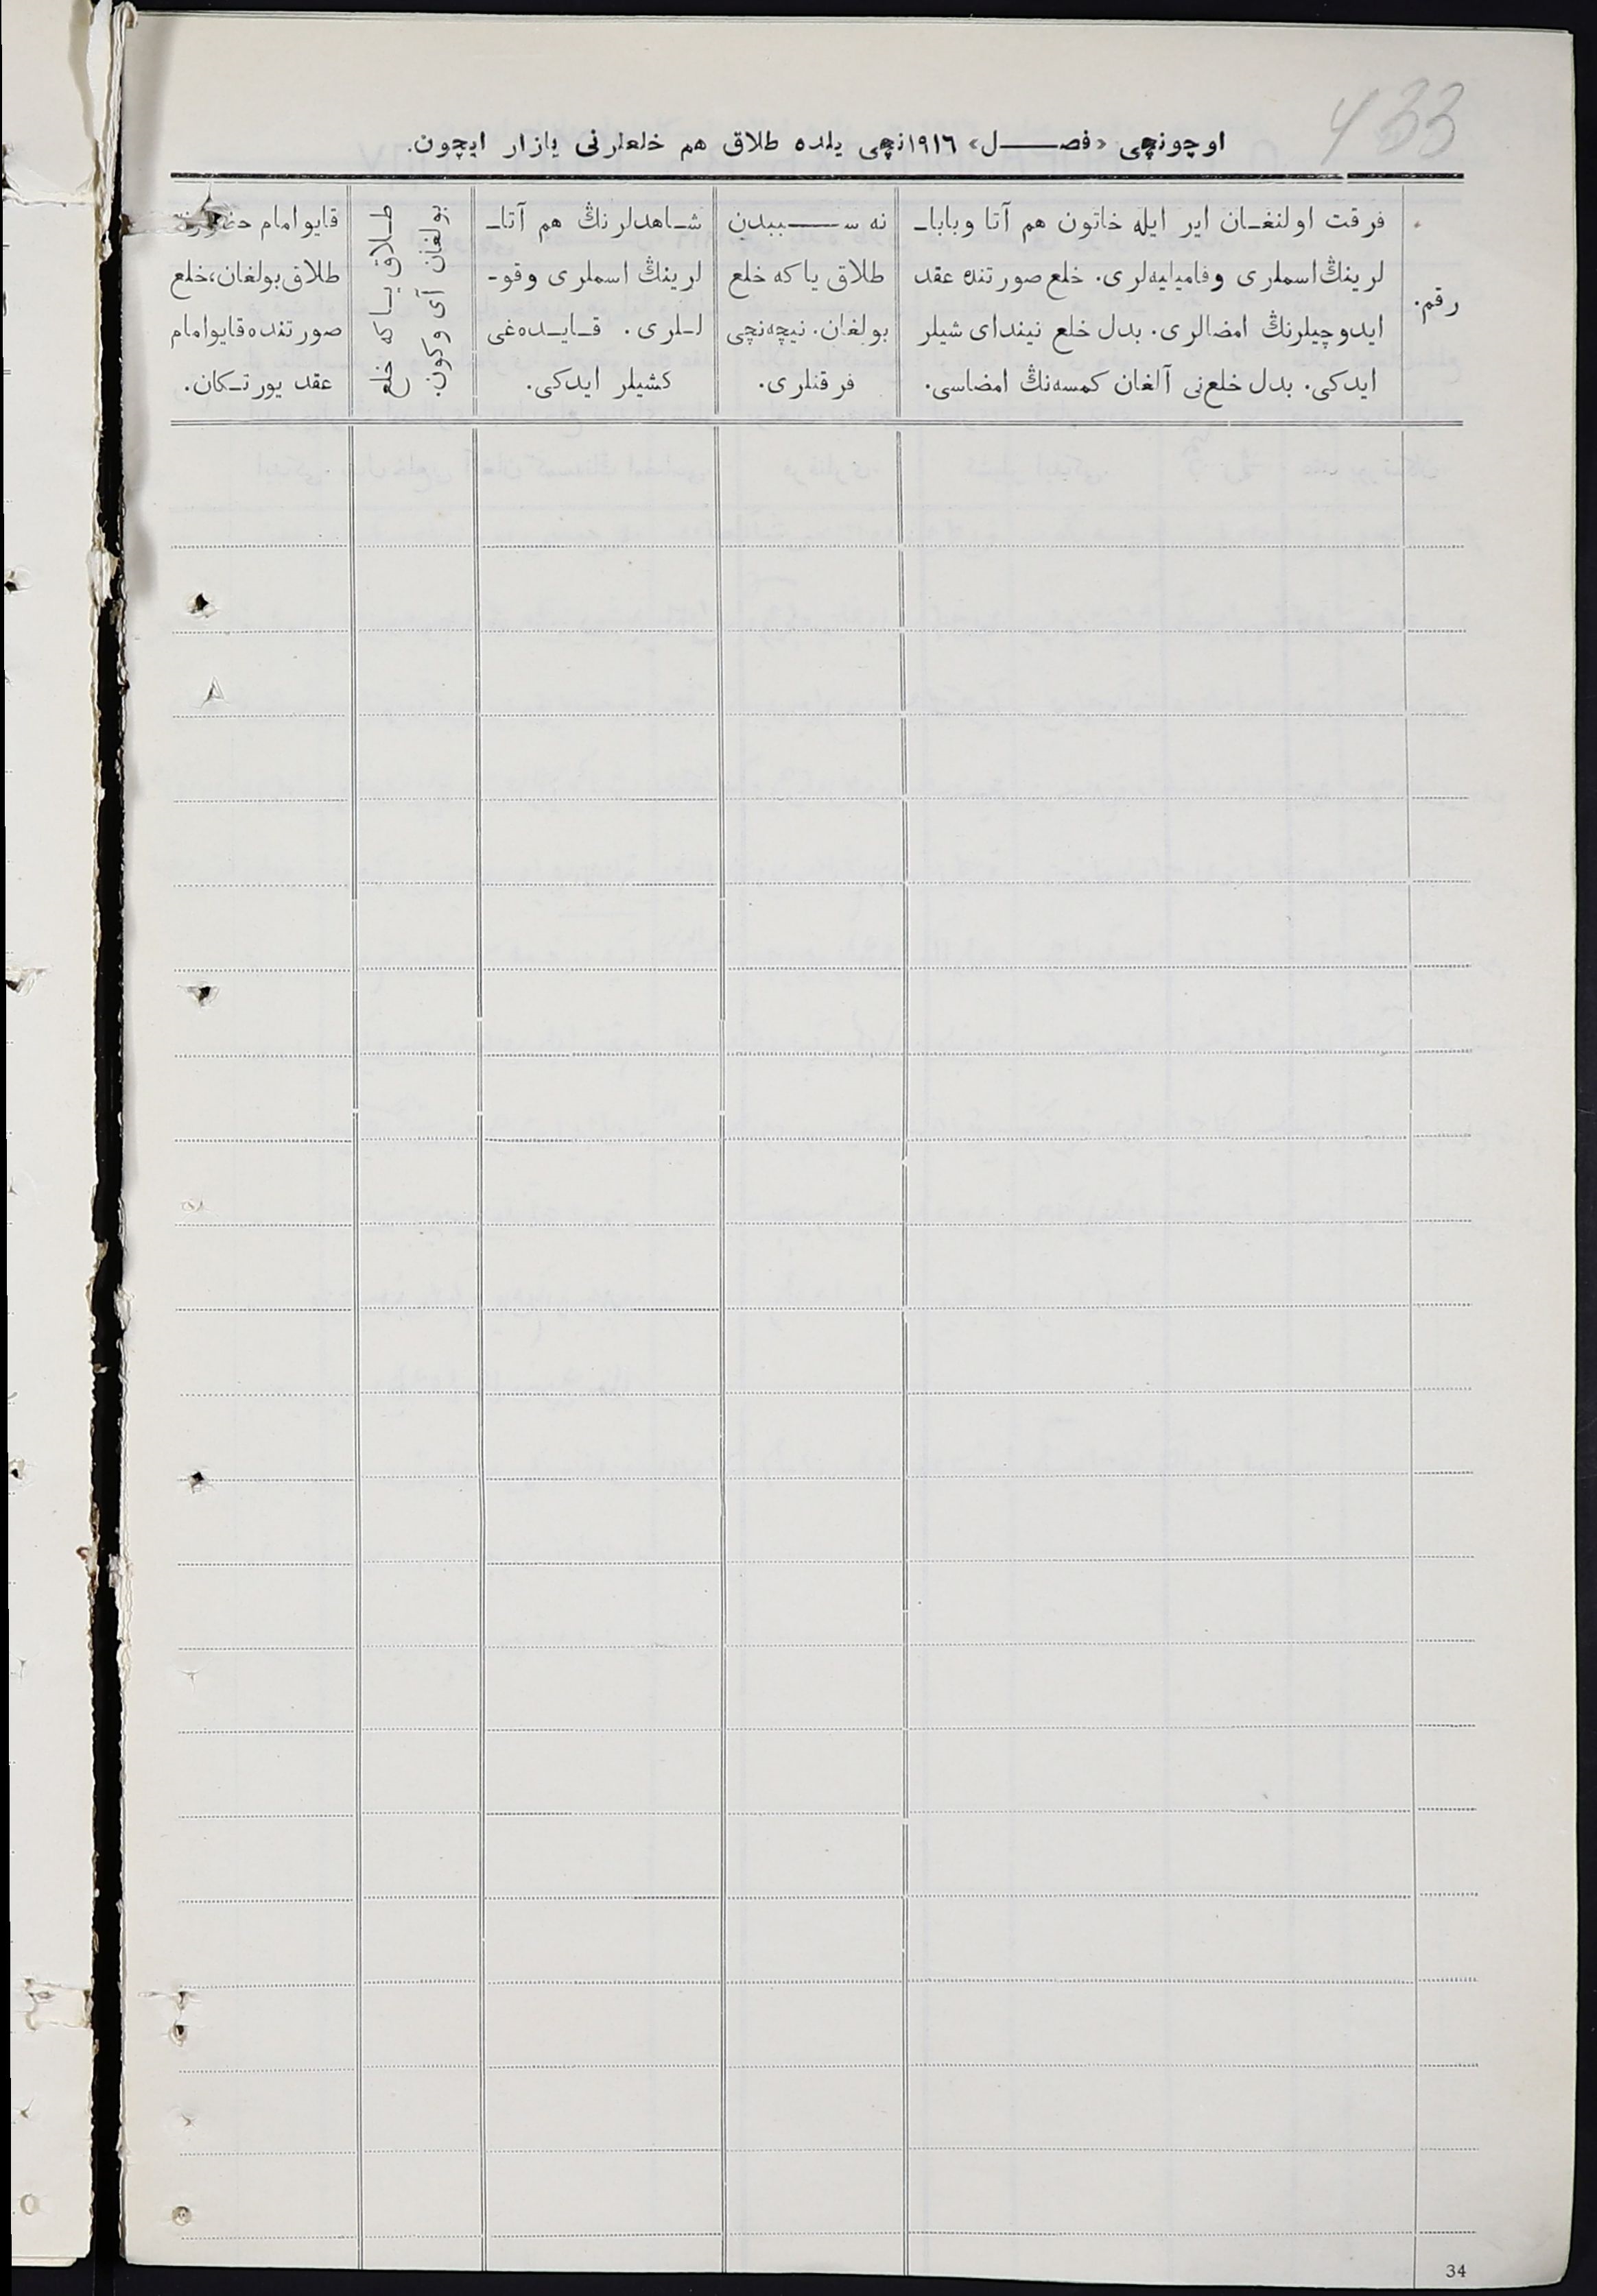 433
اوچونچی «فصل» ۱۹۱٦نچی یلده طلاق هم خلعلرنی یازار ایچون.
رقم.
فرقت اولنغان ایر ایله خاتون هم آتا وبابا-
لرینڭ اسملری وفامیلیه‌لری. خلع صورتنده عقد
ایدوچیلرنڭ امضالری. بدل خلع نیندای شیلر
ایدکی. بدل خلع‌نی آلغان کمسه‌نڭ امضاسی.
نه سببدن
طلاق یا که خلع
بولغان. نیچه‌نچی
فرقتلری.
شاهدلرنڭ هم آتا-
لرینڭ اسملری وقو-
للری. قایده‌غی
کشیلر ایدکی.
طلاق یا که خلع
بولغان آی وکون.
قایو امام
طلاق بولغان، خلع
صورتنده قایو امام
عقد یورتکان.
34